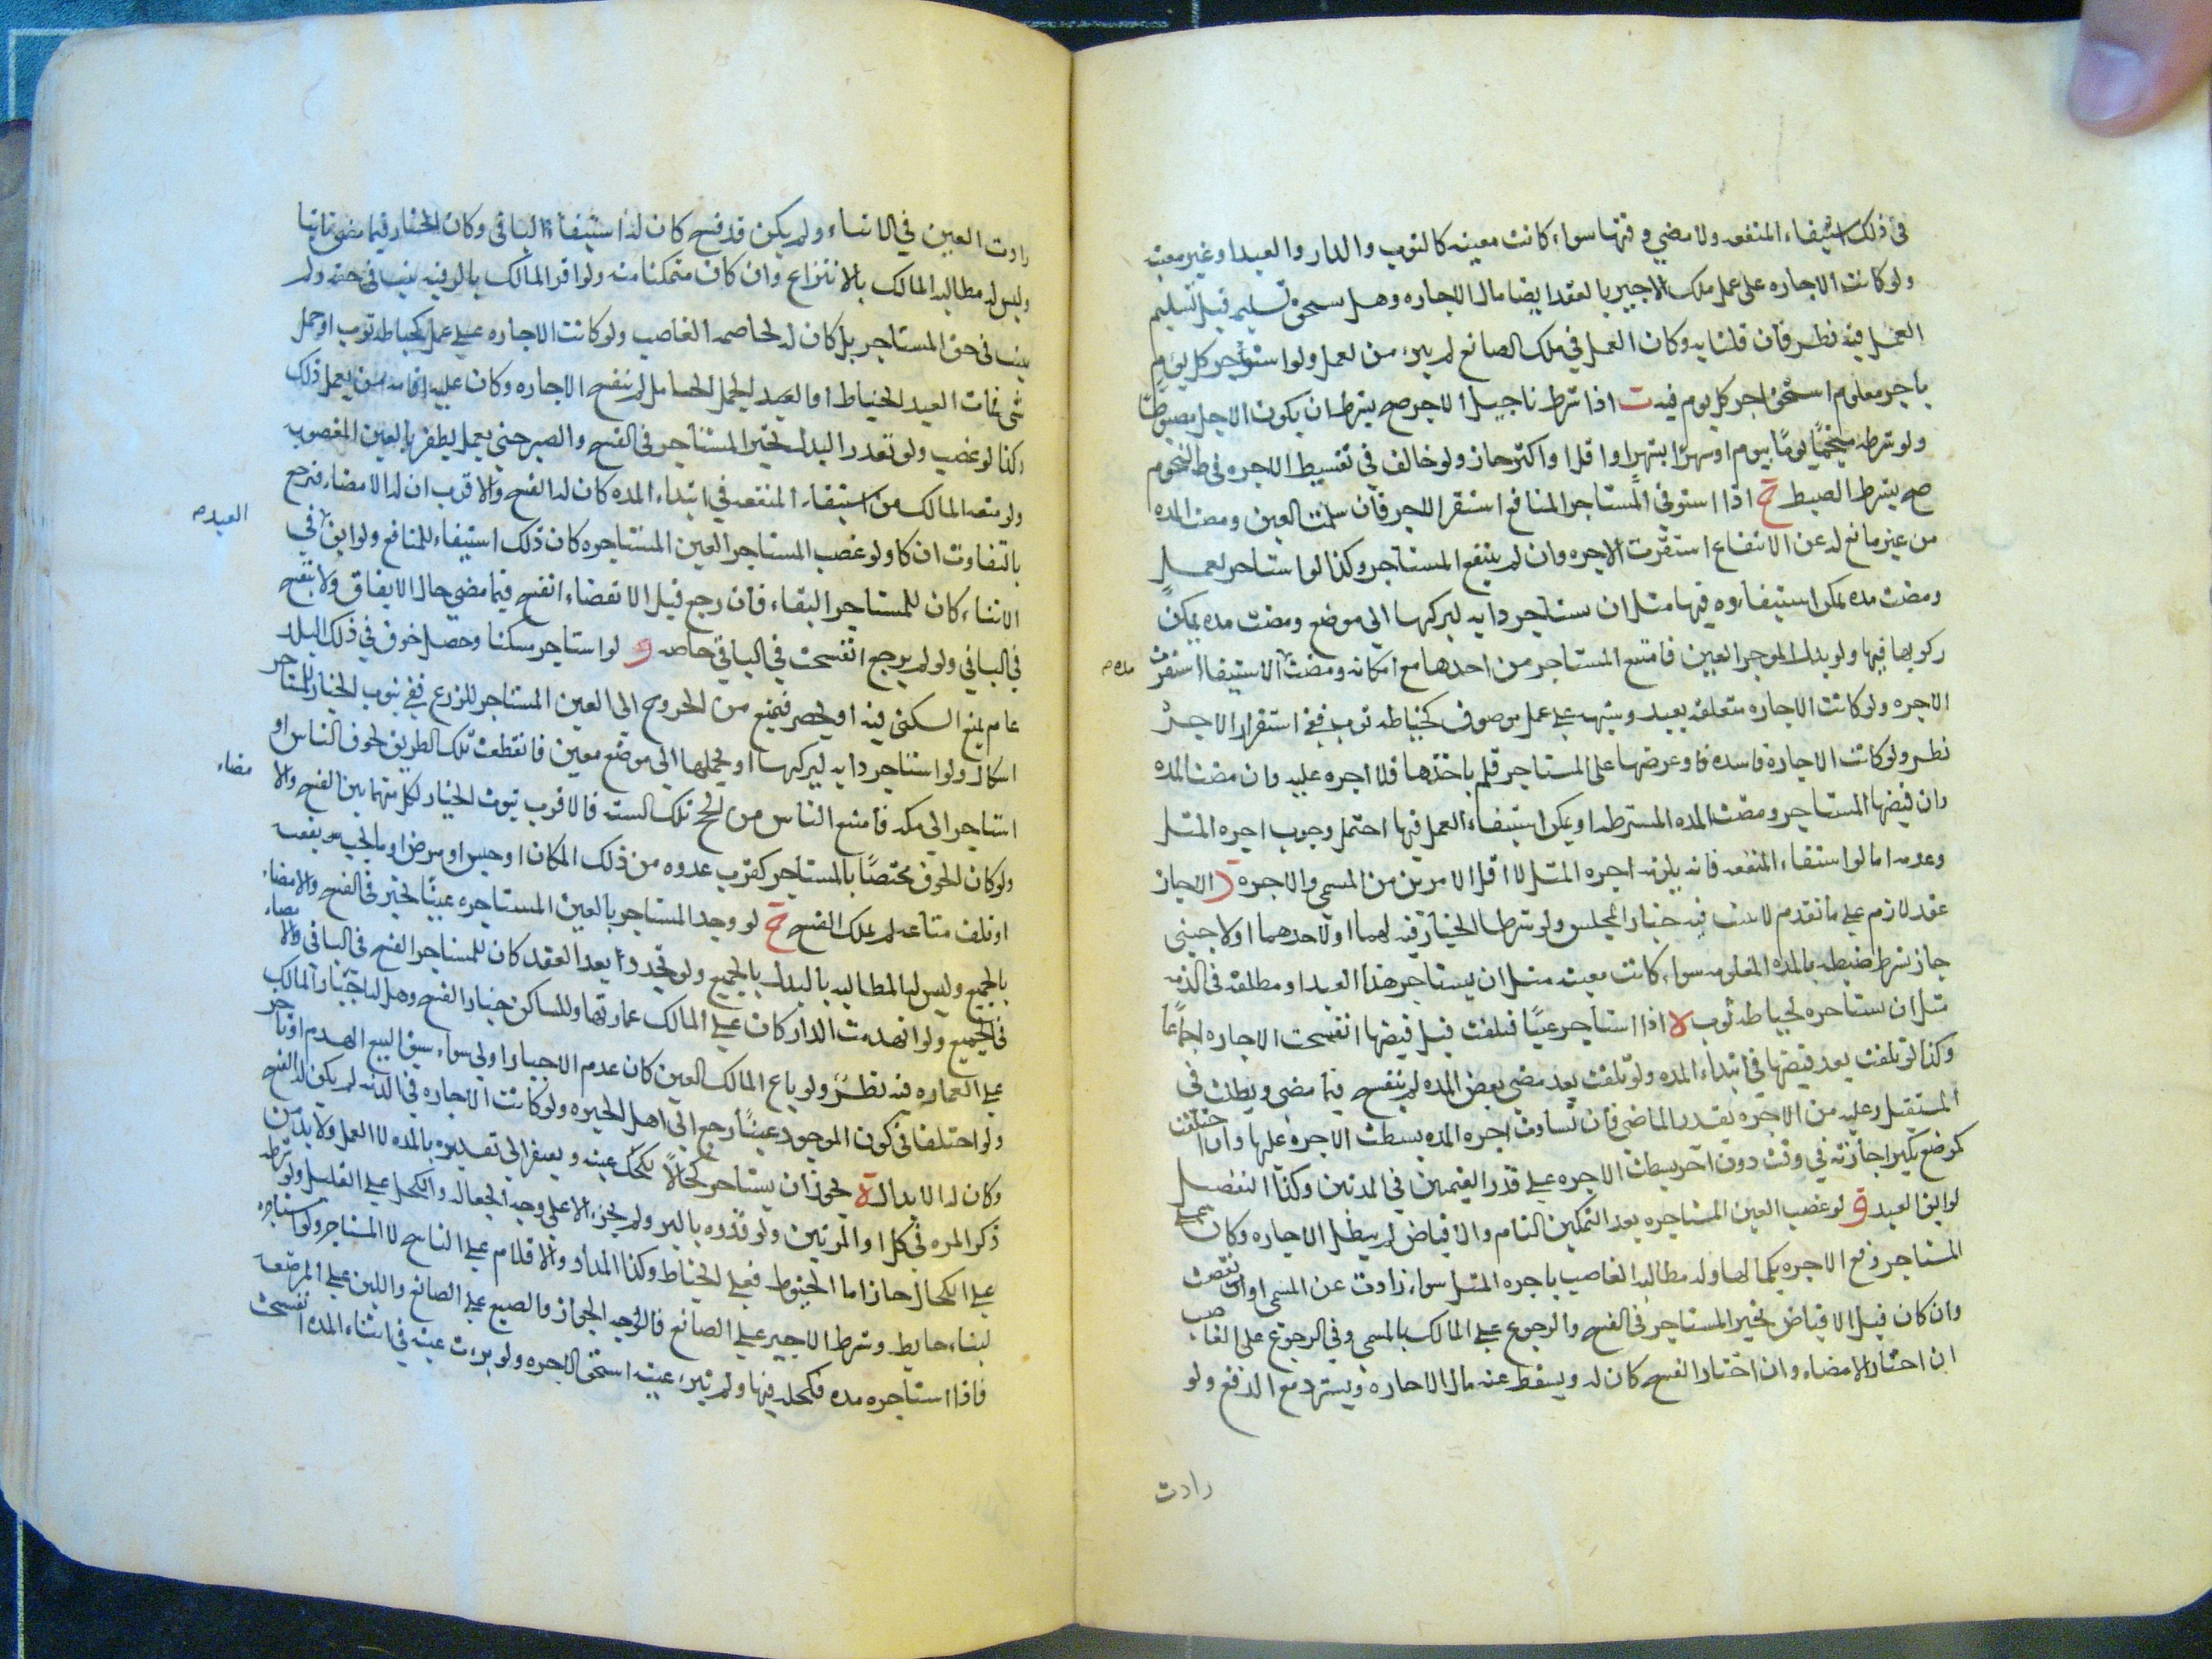 في ذلك استيفاء المنفعه ولا مضي وقتها سواء كانت معينه كالثوب والدار والعبد او غير معينه
ولو كانت الاجاره على عمل ملك الاجير بالعقد ايضا مال الاجاره وهل يستحق تسليمه قبل تسليم
العمل فيه نظر فان قلنا به وكان العمل في ملك الصانع لم يبرء من العمل ولو استوجر كل يوم
باجر معلوم استحق اجر كل يوم فيه ت اذا شرط تاجيل الاجر صح بشرط ان يكون الاجل مضبوطا
ولو شرطه منجما يوما بيوم او شهرا بشهر او اقل او اكثر جاز ولو خالف في تقسيط الاجره في النجوم
صح بشرط الضبط ج اذا استوفى المستاجر المنافع استقر الاجر فان سلمت العين ومضت المده
من غير مانع له عن الانتفاع استقرت الاجره وان لم ينتفع المستاجر وكذا لو استاجر لعمل
ومضت مده يمكن استيفاوه فيها مثل ان يستاجر دابه ليركبها الى موضع ومضت مده يمكن
ركوبها فيها ولو بذل الموجر العين فامتنع المستاجر من اخذها مع امكانه ومضت الاستيفا استقرت
مده
الاجره ولو كانت الاجاره متعلقه بعبد وشبهه على عمل موصوف كخياطه ثوب ففي استقرار الاجر
نظر ولو كانت الاجارة فاسده فاوعرضها على المستاجر فلم ياخذها فلا اجره عليه وان مضت المده
وان قبضها المستاجر ومضت المده المشترطه او يمكن استيفاء العمل فيها احتمل وجوب اجره المثل
وعدمه اما لو استوفاء المنفعه فانه يلزمه اجره المثل لا اقل الامرين من المسمى والاجره د الاجاز
عقد لازم على ما تقدم لا يثبت فيه خيار المجلس ولو شرطا الخيار فيه لهما او لاحدهما او لاجنبي
جاز بشرط ضبطه بالمده المعلومه سواء كانت معينه مثل ان يستاجر هذا العبد او مطلقه في الذمه
مثل ان يستاجره لخياطه ثوب ه اذا استاجر عينا فتلفت قبل قبضها انفسخت الاجاره اجماعا
وكذا لو تلفت بعد قبضها في ابتداء المده ولو تلفت بعد مضي بعض المده لم ينفسخ فيما مضى وبطلت في
المستقبل وعليه من الاجره بقدر الماضي فان تساوت اجره المده بسطت الاجره عليها وان اختلفت
كموضع يكثر اجازته في وقت دون آخر بسطت الاجره على قدر القيمتين في المدتين وكذا التفصيل
لو ابق العبد و لو غصب العين المستاجره بعد التمكين التام والاقباض لم يبطل الاجاره وكان على
المستاجر دفع الاجره بكمالها وله مطالبه الغاصب باجره المثل سواء زادت عن المسمى او نقصت
وان كان قبل الاقباض تخير المستاجر في الفسخ والرجوع على المالك بالمسمى وفي الرجوع على الغاصب
ان اختار الامضاء وان اختار الفسخ كان له ويسقط عنه مال الاجاره ويسترد مع الدفع ولو
رادت
رادت العين في الاثناء ولم يكن قد فسخ كان له استيفاء الباقي وكان الخيار فيما مضى ثابتا
وليس له مطالبه المالك بالانتزاع وان كان متمكنا منه ولو اقر المالك بالرقبه يثبت في حقه ولم
يثبت في حق المستاجر بل كان له مخاصمه الغاصب ولو كانت الاجاره على عمل كخياطه ثوب او حمل
شي فمات العبد الخياط او العبد ليحمل الحامل لم ينفسخ الاجاره وكان عليه اقامه من يعمل ذلك
وكذا لو غصب ولو تعذر البدل تخير المستاجر في الفسخ والصبر حتى يعمل يظفر بالعين المغصوب
ولو منعه المالك من استيفاء المنفعه في ابتداء المده كان له الفسخ والاقرب ان له الامضاء فيرجع
بالتفاوت ان كان ولو غصب المستاجر العين المستاجره كان ذلك استيفاء للمنافع ولو ابق في
العبد
الاثناء كان للمستاجر البقاء فان رجع قبل الانقضاء انفسخ فيما مضى حال الاباق ولا ينفسخ
في الباقي ولو لم يرجع انفسخت في الباقي خاصه و لو استاجر مسكنا وحصل خوف في ذلك البلد
عام يمنع السكنى فيه او يحصر فيمنع من الخروج الى العين المستاجر للزرع ففي ثبوت الخيار للمستاجر
اشكال ولو استاجر دابه ليركبها او يحملها الى موضع معين فانقطعت تلك الطريق لخوف الناس او
استاجر الى مكه فامتنع الناس من الحج تلك السنه فالاقرب ثبوت الخيار لكل منهما بين الفسخ والا
مضاء
ولو كان الخوف مختصا بالمستاجر كقرب عدوه من ذلك المكان او حبس او مرض او
او تلف متاعه لم يملك الفسخ ح لو وجد المستاجر بالعين المستاجره عيبا تخير في الفسخ والامضاء
بالجميع وليس له المطالبه بالبدل بالجميع ولو تجدد بعد العقد كان للمستاجر الفسخ في الباقي والامضاء
في الجميع ولو انهدمت الدار كان على المالك عمارتها وللساكن خيار الفسخ وهل له اجبار المالك
على العماره فيه نظر ولو باع المالك العين كان عدم الاجبار اولى سواء سبق البيع الهدم او تاخر
ولو اختلفا في كون الموجود عيبا رجع الى اهل الخبره ولو كانت الاجاره في الذمه لم يكن له الفسخ
وكان له الابدال ط يجوز ان يستاجر كحالا يكحل عينه ويفتقر الى تقديره بالمده لا العمل ولا بد من
ذكر المره في كل او المرتين ولو قدره بالبر ولم يجز الا على وجه الجعاله والكحل على العليل ولو شرطه
على الكحال جاز اما الخيوط فعلى الخياط وكذا المداد والاقلام على الناسخ لا المستاجر ولو استاجره
لبناء حايط وشرط الاجير على الصانع فالوجه الجواز والصبغ على الصانع واللبن على المرضعه
فاذا استاجره مده فكحله فيها ولم تبرء عينه استحق الاجره ولو برءت عينه في اثناء المده انفسخت